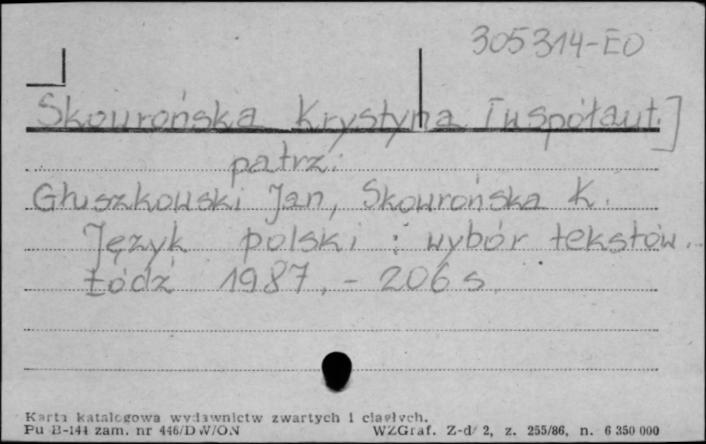 305314-EO
Skowrońska Krystyna [współaut.]
patrz:
Głuszkowski Jan, Skowrońska K.
Język polski : wybór tekstów.
Łódź 1987. - 206 s.
Karta katalogowa wydawnictw zwartych i ciągłych.
Pu B-144 zam. nr 446/DW/ON WZGraf. Z-d 2, z. 255/86, n. 6 350 000